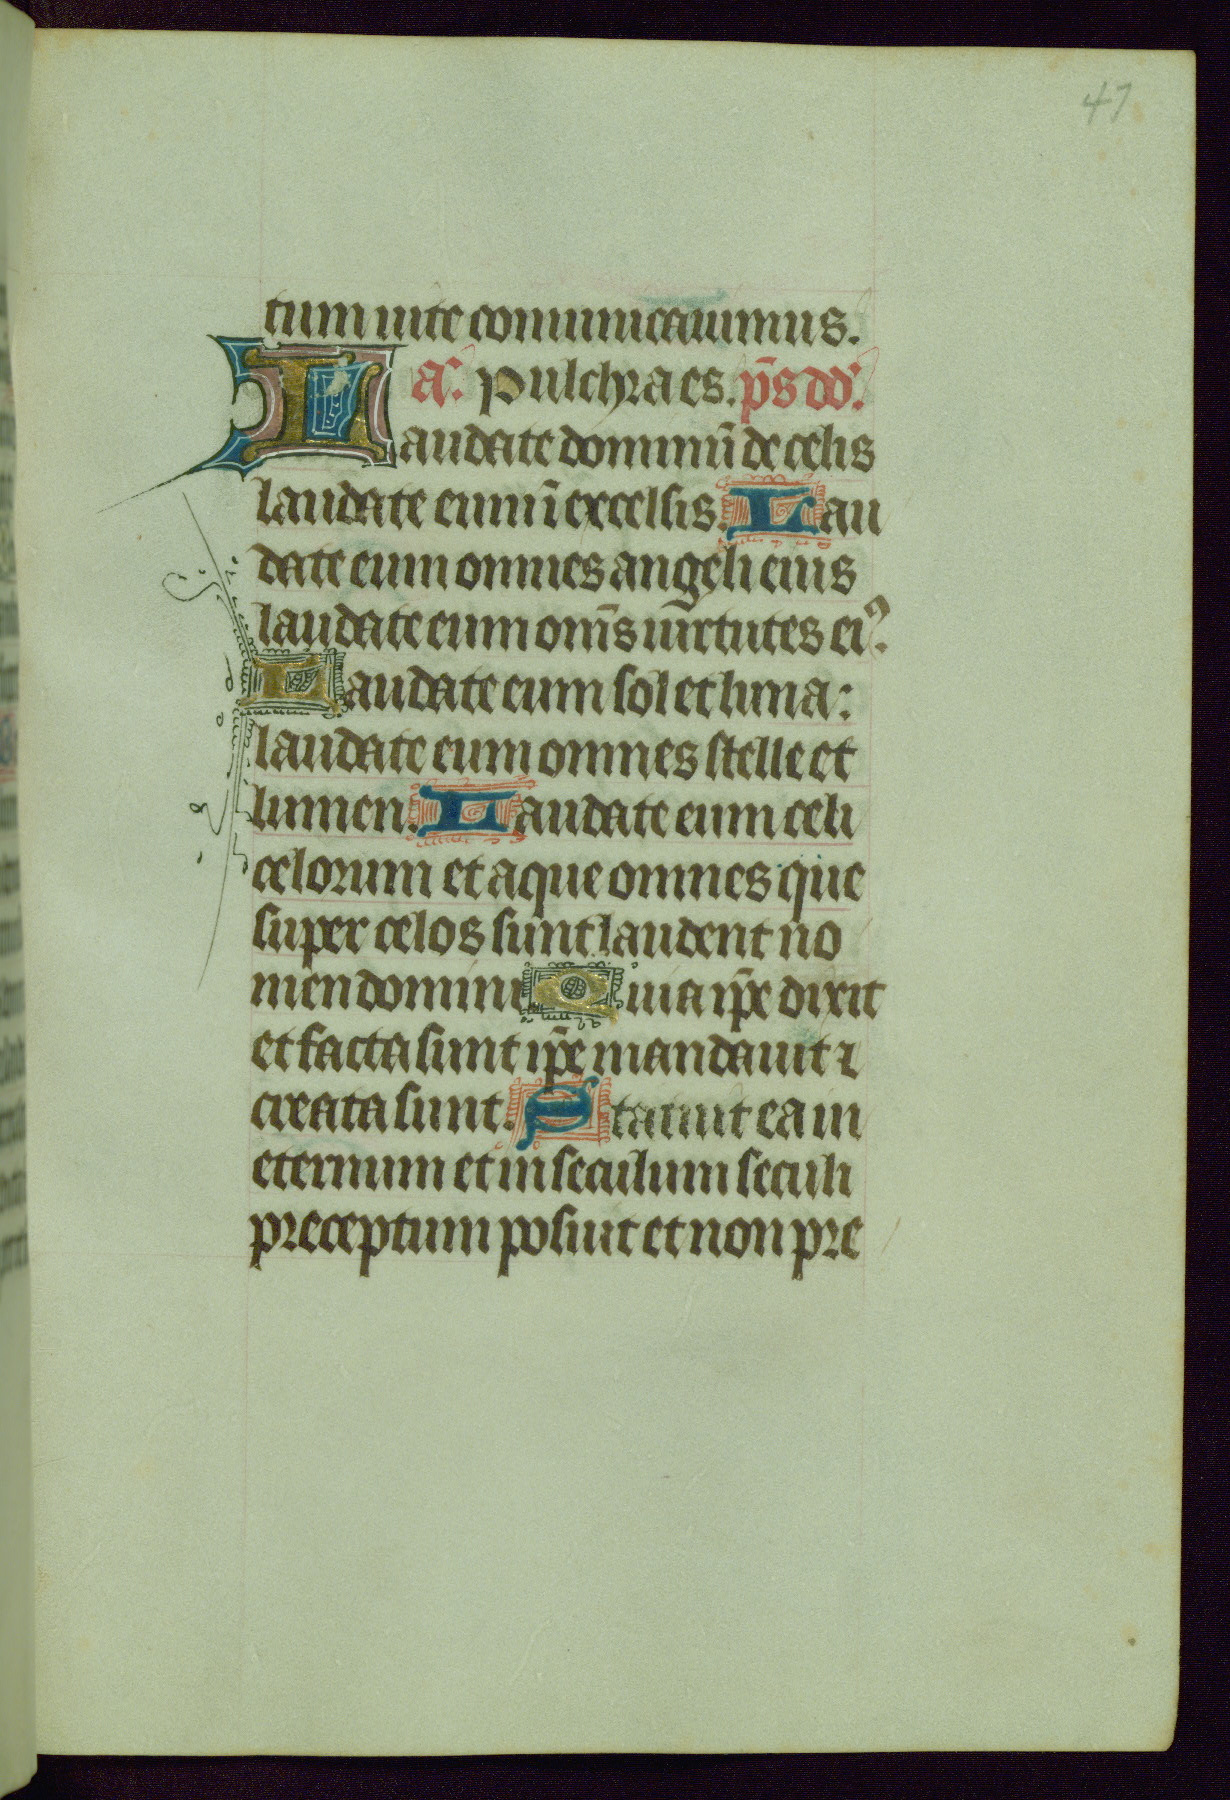 47
tum uite comunicauimus.
a᷒. Pulchra es. p̄s dd᷒.
Laudate dominū de celis
laudate eum ī excelsis. Lau
date eum omnes angeli eius
laudate eum om̄s uirtutes ei᷒.
Laudate eum sol et luna:
laudate eum omnes stelle et
lumen. Laudate eum celi
celorum et aque omnes que
super celos sunt laudent no
men domini Quia ip̄e dixit
et facta sunt ip̄e mandauit ⁊
creata sunt. Statuit ea in
eternum et in seculum seculi
preceptum posuit et non pre